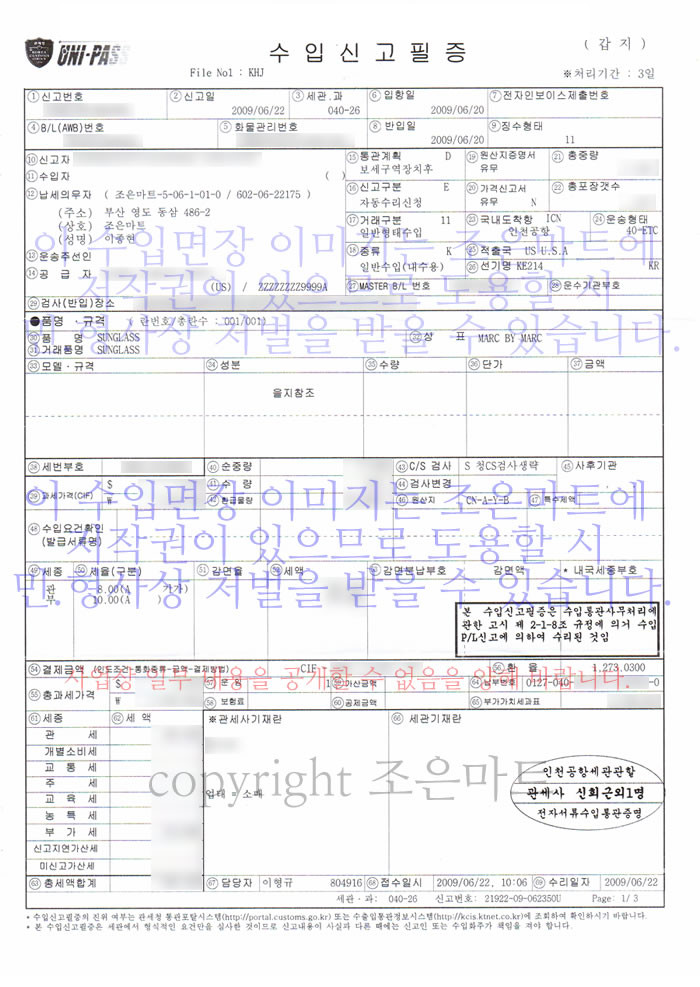 UNI-PASS
수 입 신 고 필 증
( 갑 지 )
File No1 : KHJ
※처리기간 : 3일
① 신고번호
② 신고일
2009/06/22
③ 세관.과
040-26
⑥ 입항일
2009/06/20
⑦ 전자인보이스제출번호
④ B/L(AWB)번호
⑤ 화물관리번호
⑧ 반입일
2009/06/20
⑨ 징수형태
11
⑩ 신고자
⑪ 수입자 ( )
⑫ 납세의무자 ( 조은마트-5-06-1-01-0 / 602-06-22175 )
(주소) 부산 영도 동삼 486-2
(상호) 조은마트
(성명) 이종현
⑬ 운송주선인
⑭ 공 급 자
(US) / ZZZZZZZZ9999A
⑮ 통관계획 D
보세구역장치후
⑯ 신고구분 E
자동수리신청
⑰ 거래구분 11
일반형태수입
⑱ 종류 K
일반수입(내수용)
⑲ 원산지증명서
유무
⑳ 가격신고서
유무 N
㉑ 총중량
㉒ 총포장갯수
㉓ 국내도착항 ICN
인천공항
㉔ 운송형태
40-ETC
㉕ 적출국 US U.S.A
㉖ 선기명 KE214 KR
㉗ MASTER B/L 번호
㉘ 운수기관부호
㉙ 검사(반입)장소
이 수입면장 이미지는 조은마트에
저작권이 있으므로 도용할 시
민.형사상 처벌을 받을 수 있습니다.
●품명 · 규격 ( 란번호/총란수 : 001/001)
㉚ 품 명 SUNGLASS
㉛ 거래품명 SUNGLASS
㉜ 상 표 MARC BY MARC
㉝ 모델·규격
㉞ 성분
㉟ 수량
㊱ 단가
㊲ 금액
을지참조
㊳ 세번부호
㊴ 과세가격(CIF)
$
₩
㊵ 순중량
㊶ 수 량
㊷ 환급물량
㊸ C/S 검사 S 청CS검사생략
㊹ 검사변경
㊺ 사후기관
㊻ 원산지 CN-A-Y-B
㊼ 특수세액
㊽ 수입요건확인
(발급서류명)
이 수입면장 이미지는 조은마트에
저작권이 있으므로 도용할 시
민.형사상 처벌을 받을 수 있습니다.
㊾ 세종
㊿ 세율(구분)
(51) 감면율
(52) 세액
감면분납부호
감면액
* 내국세종부호
관 8.00(A 가가)
부 10.00(A )
본 수입신고필증은 수입통관사무처리에
관한 고시 제 2-1-8조 규정에 의거 수입
P/L신고에 의하여 수리된 것임
(54) 결제금액 (인도조건-통화종류-금액-결제방법)
CIF
(56) 환 율 1,273.0300
사업상 일부 내용을 공개할 수 없음을 양해 바랍니다.
(55) 총과세가격
$
₩
(57) 운 임
(58) 보험료
(59) 가산금액
(60) 공제금액
(64) 납부번호 0127-040- -0
(65) 부가가치세과표
(61) 세종
(62) 세 액
※관세사기재란
(66) 세관기재란
관 세
개별소비세
교 통 세
주 세
교 육 세
농 특 세
부 가 세
신고지연가산세
미신고가산세
업태 = 소매
copyright 조은마트
인천공항세관관할
관세사 신희근외1명
전자서류수입통관증명
(63) 총세액합계
(67) 담당자 이형규 804916
(68) 접수일시 2009/06/22, 10:06
(69) 수리일자 2009/06/22
세관·과: 040-26 신고번호: 21922-09-062350U Page: 1/ 3
* 수입신고필증의 진위 여부는 관세청 통관포탈시스템(http://portal.customs.go.kr) 또는 수출입통관정보시스템(http://kcis.ktnet.co.kr)에 조회하여 확인하시기 바랍니다.
* 본 수입신고필증은 세관에서 형식적인 요건만을 심사한 것이므로 신고내용이 사실과 다른 때에는 신고인 또는 수입화주가 책임을 져야 합니다.